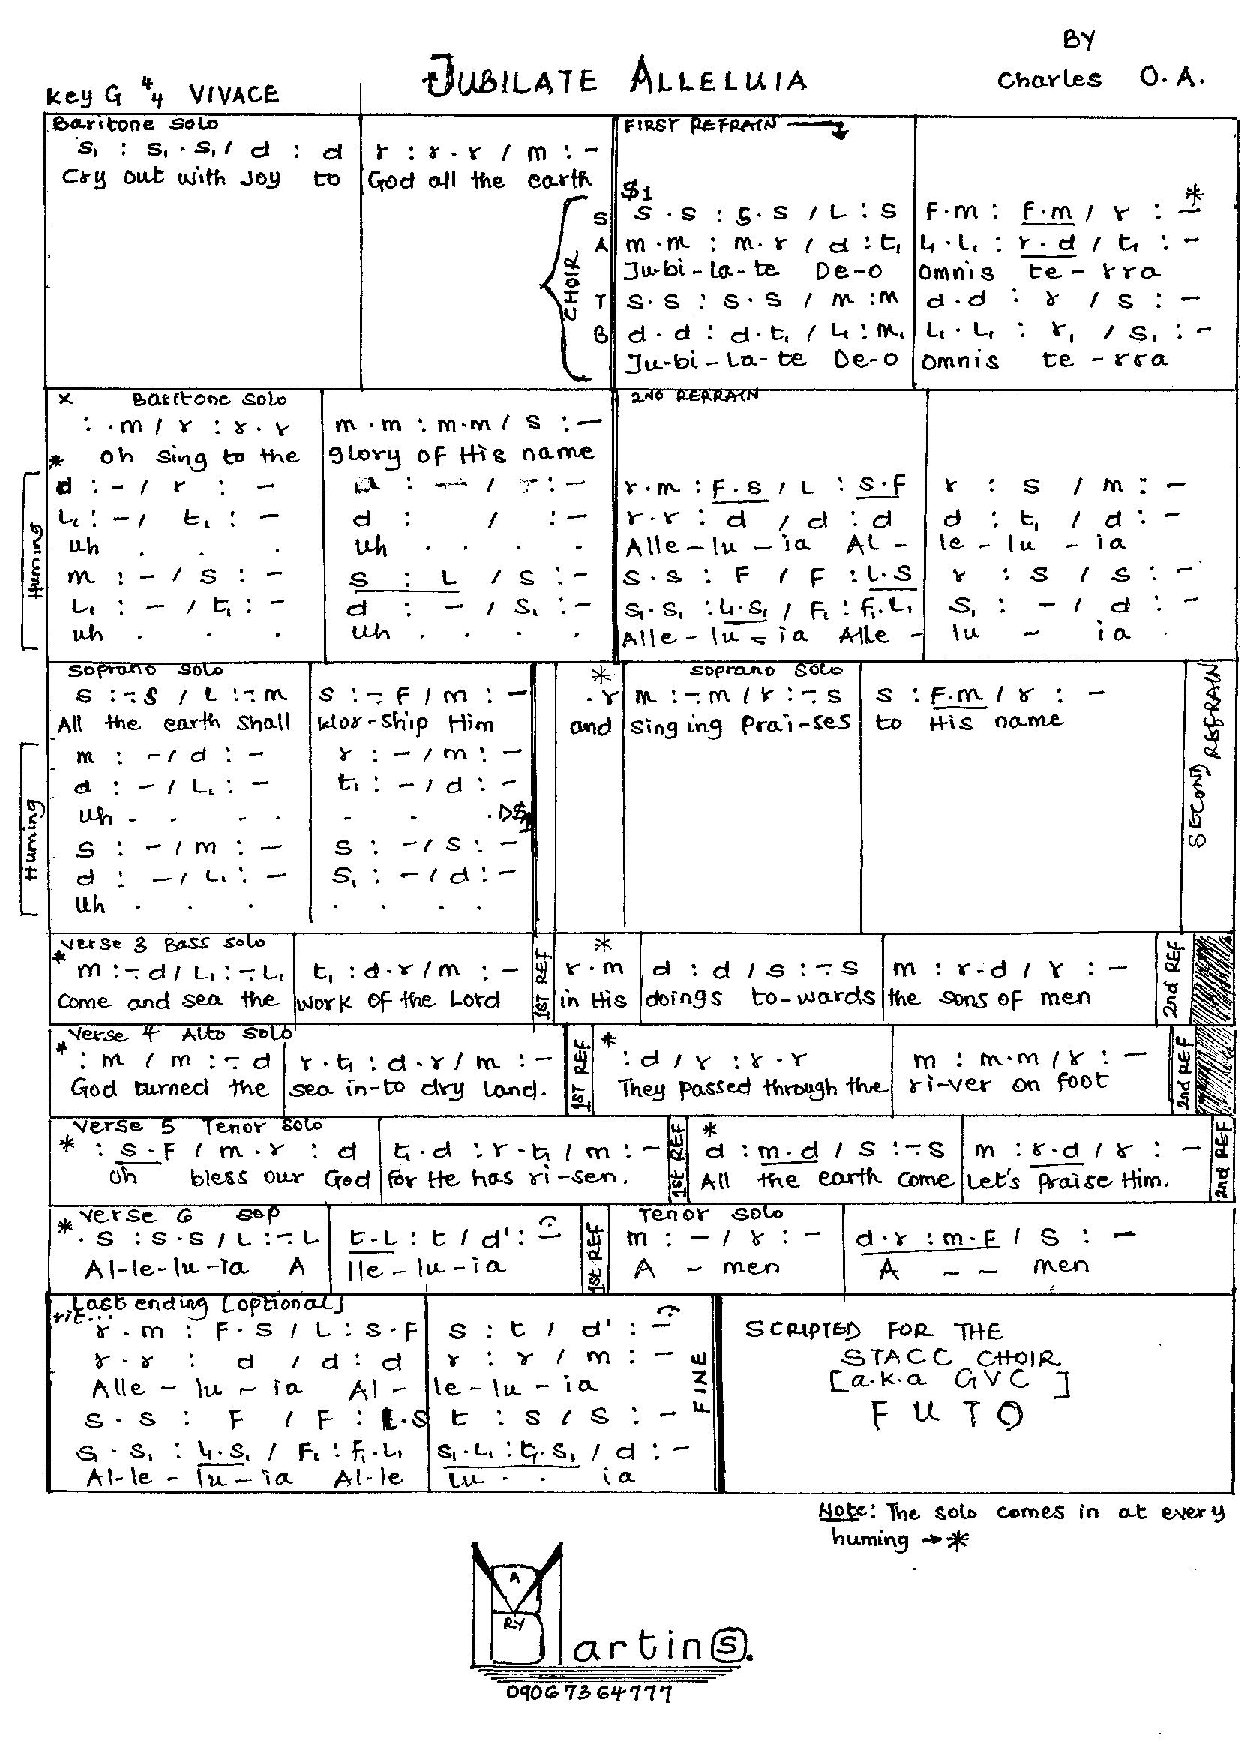 BY
JUBILATE ALLELUIA
Charles O. A.
Key G 4/4 VIVACE
Baritone Solo
s₁ : s₁ . s₁ / d : d | r : r . r / m : –
Cry out with Joy to | God all the earth
FIRST REFRAIN
$1
CHOIR
S s . s : s . s / L : s | F . m : F . m / r : – *
A m . m : m . r / d : t₁ | L₁ . L₁ : r . d / t₁ : –
Ju-bi-la-te De-o | Omnis te-rra
T s . s : s . s / m : m | d . d : r / s : –
B d . d : d . t₁ / L₁ : m₁ | L₁ . L₁ : r₁ / s₁ : –
Ju-bi-La-te De-o | omnis te-rra
x Baritone Solo
: . m / r : r . r | m . m : m . m / s : –
* Oh sing to the | glory of His name
Huming
d : – / r : –
L₁ : – / t₁ : – | d : / : –
uh . . . | uh . . . .
m : – / s : – | s : L / s : –
L₁ : – / t₁ : – | d : – / s₁ : –
uh . . . | uh . . . .
2ND REFRAIN
r . m : F . s / L : s . F | r : s / m : –
r . r : d / d : d | d : t₁ / d : –
Alle-lu-ia Al- | le-lu-ia
s . s : F / F : L . s | r : s / s : –
s₁ . s₁ : L₁ . s₁ / F₁ : F₁ . L₁ | s₁ : – / d : –
Alle-lu-ia Alle- | lu - ia
Soprano Solo
s : – . s / L : – . m | s : – . F / m : –
All the earth shall | Wor-ship Him
Huming
m : – / d : – | r : – / m : –
d : – / L₁ : – | t₁ : – / d : –
uh . . . . . . . D$1
s : – / m : – | s : – / s : –
d : – / L₁ : – | s₁ : – / d : –
uh . . . . . . .
* Soprano Solo
. r | m : – . m / r : – . s | s : F . m / r : –
and | singing Prai-ses | to His name
SECOND REFRAIN
Verse 3 Bass Solo
* m : – . d / L₁ : – . L₁ | t₁ : d . r / m : –
Come and sea the | work of the Lord
1ST REF
*
r . m | d : d / s : – . s | m : r . d / r : –
in His | doings to-wards | the sons of men
2nd REF
Verse 4 Alto Solo
* : m / m : – . d | r . t₁ : d . r / m : –
God turned the | sea in-to dry land.
1ST REF
* : d / r : r . r | m : m . m / r : –
They passed through the | ri-ver on foot
2nd REF
Verse 5 Tenor Solo
* : s . F / m . r : d | t₁ . d : r . t₁ / m : –
Oh bless our God | for He has ri-sen.
1st REF
*
d : m . d / s : – . s | m : r . d / r : –
All the earth come | Let's Praise Him.
2nd REF
Verse 6 Sop
* . s : s . s / L : – . L | t . L : t / d' : –
Al-le-lu-ia A | lle-lu-ia
1st REF
Tenor Solo
m : – / r : – | d . r : m . F / s : –
A - men | A - - men
Last ending [optional]
rit...
r . m : F . s / L : s . F | s : t / d' : –
r . r : d / d : d | r : r / m : –
Alle-lu-ia Al- | le-lu-ia
s . s : F / F : L . s | t : s / s : –
s₁ . s₁ : L₁ . s₁ / F₁ : F₁ . L₁ | s₁ . L₁ : t₁ . s₁ / d : –
Al-le-lu-ia Al-le | lu . . ia
FINE
SCRIPTED FOR THE
STACC CHOIR
[a.k.a GVC]
FUTO
Note: The solo comes in at every
huming → *
A
RY
Martins.
09067364777